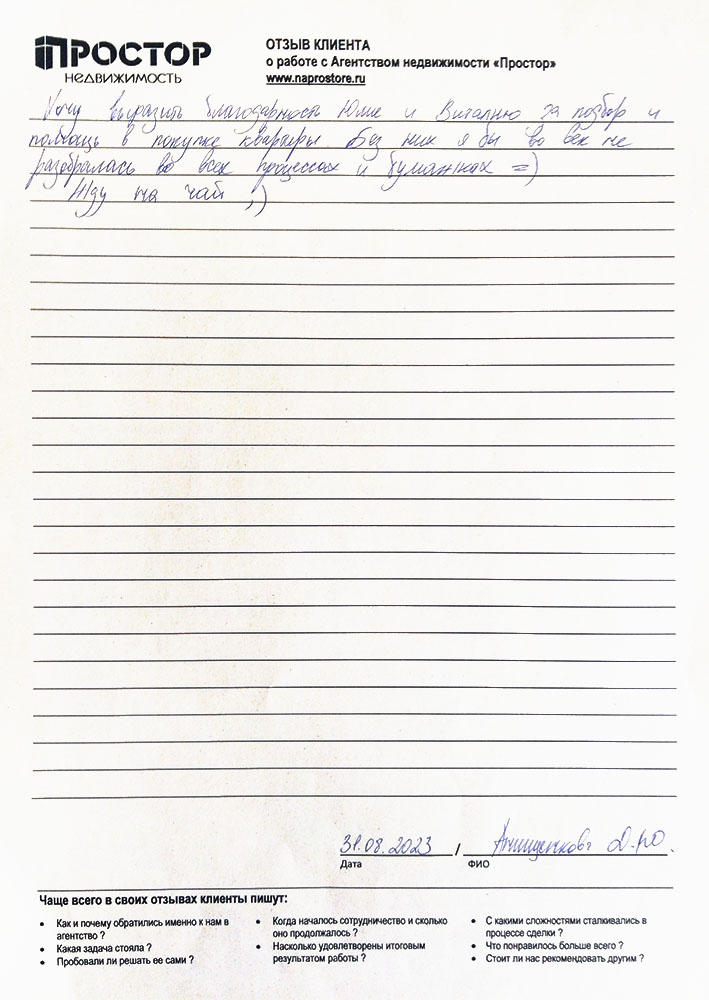 ПРОСТОР
НЕДВИЖИМОСТЬ
ОТЗЫВ КЛИЕНТА
о работе с Агентством недвижимости «Простор»
www.naprostore.ru
Хочу выразить благодарность Юлие и Виталию за подбор и
помощь в покупке квартиры Без них я бы во век не
разобралась во всех процессах и бумажках =)
Жду на чай ;)
31.08.2023 / Анищенкова Д.Ю.
Дата ФИО
Чаще всего в своих отзывах клиенты пишут:
• Как и почему обратились именно к нам в
агентство ?
• Какая задача стояла ?
• Пробовали ли решать ее сами ?
• Когда началось сотрудничество и сколько
оно продолжалось ?
• Насколько удовлетворены итоговым
результатом работы ?
• С какими сложностями сталкивались в
процессе сделки ?
• Что понравилось больше всего ?
• Стоит ли нас рекомендовать другим ?